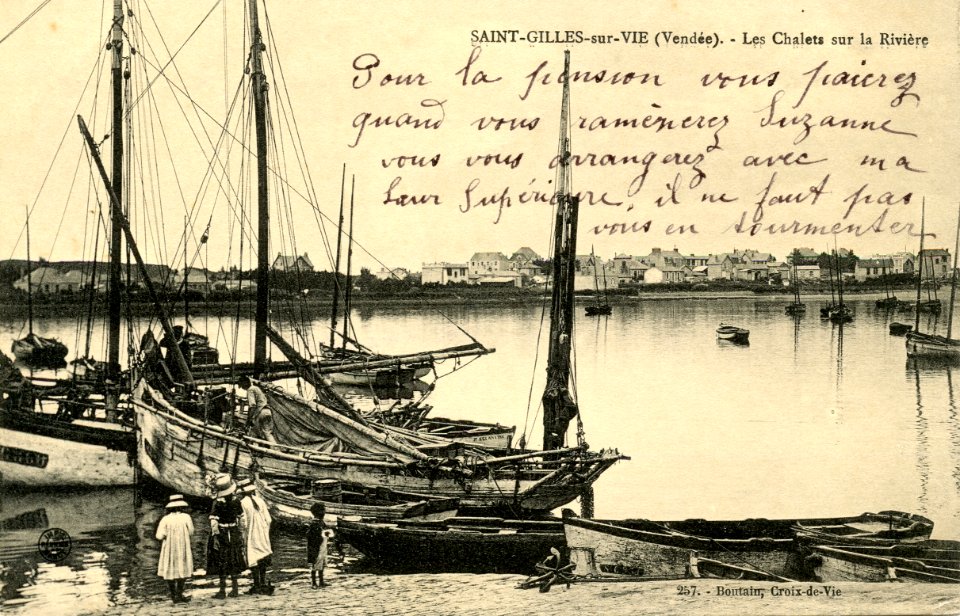 SAINT-GILLES-sur-VIE (Vendée). - Les Chalets sur la Rivière
Pour la pension vous paierez
quand vous ramènerez Suzanne
vous vous arrangerez avec ma
Sœur Supérieure, il ne faut pas
vous en tourmenter
257. - Boutain, Croix-de-Vie